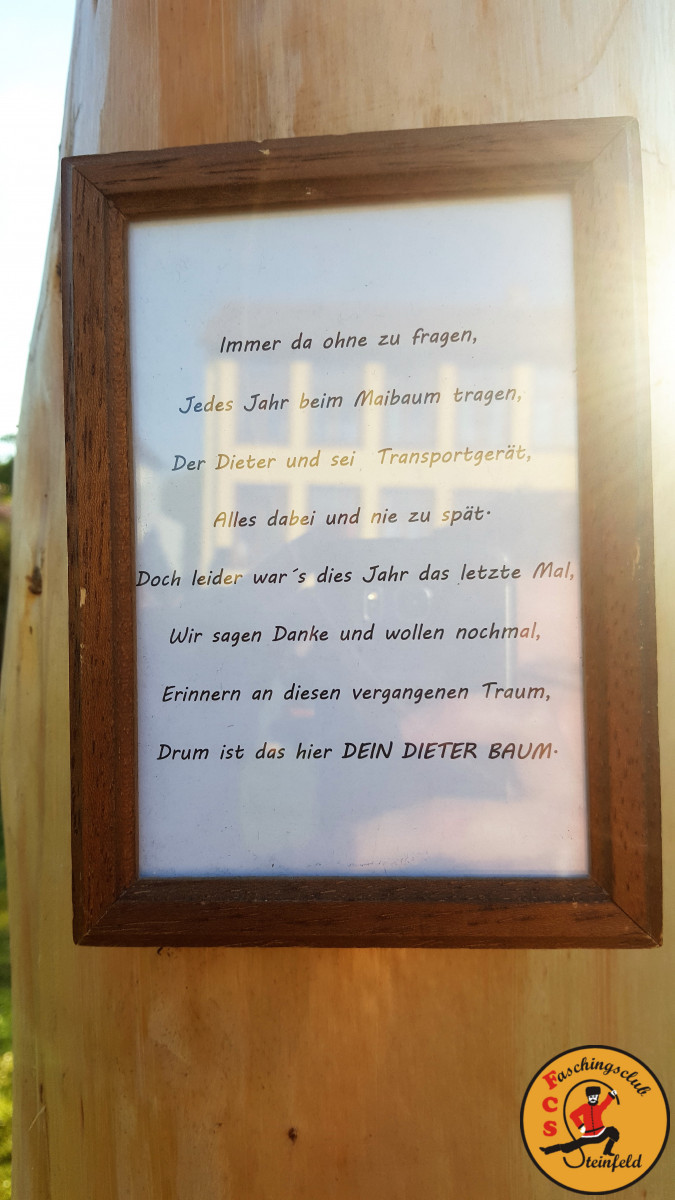 Immer da ohne zu fragen,
Jedes Jahr beim Maibaum tragen,
Der Dieter und sei Transportgerät,
Alles dabei und nie zu spät.
Doch leider war´s dies Jahr das letzte Mal,
Wir sagen Danke und wollen nochmal,
Erinnern an diesen vergangenen Traum,
Drum ist das hier DEIN DIETER BAUM.
Faschingsclub
FCS
Steinfeld